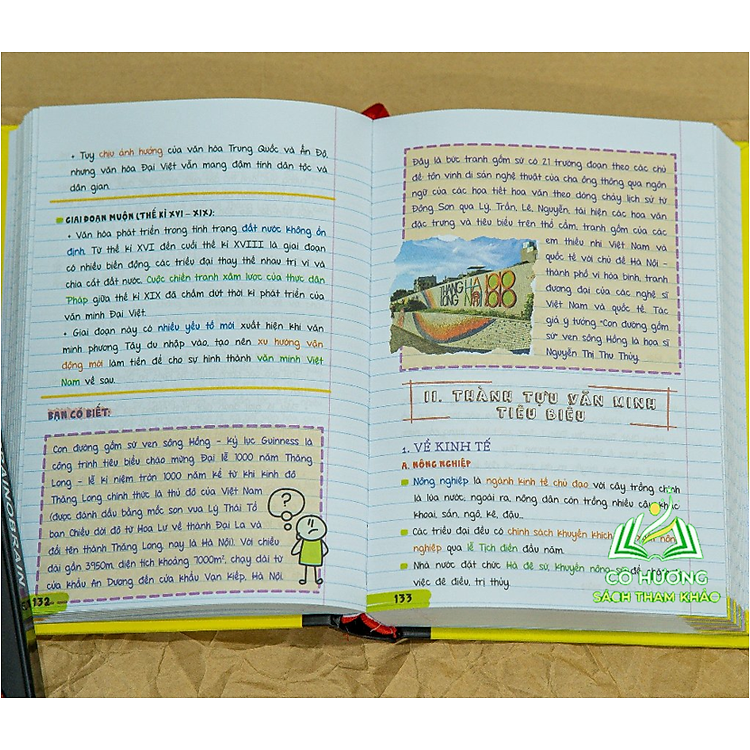 • Tuy chịu ảnh hưởng của văn hóa Trung Quốc và Ấn Độ,
nhưng văn hóa Đại Việt vẫn mang đậm tính dân tộc và
dân gian.
GIAI ĐOẠN MUỘN (THẾ KỈ XVI – XIX):
• Văn hóa phát triển trong tình trạng đất nước không ổn
định. Từ thế kỉ XVI đến cuối thế kỉ XVIII là giai đoạn
có nhiều biến động, các triều đại thay thế nhau trị vì và
chia cắt đất nước. Cuộc chiến tranh xâm lược của thực dân
Pháp giữa thế kỉ XIX đã chấm dứt thời kì phát triển của
văn minh Đại Việt.
• Giai đoạn này có nhiều yếu tố mới xuất hiện khi văn
minh phương Tây du nhập vào, tạo nên xu hướng vận
động mới làm tiền đề cho sự hình thành văn minh Việt
Nam về sau.
BẠN CÓ BIẾT:
Con đường gốm sứ ven sông Hồng - Kỷ lục Guinness là
công trình tiêu biểu chào mừng Đại lễ 1000 năm Thăng
Long - lễ kỉ niệm tròn 1000 năm kể từ khi kinh đô
Thăng Long chính thức là thủ đô của Việt Nam
(được đánh dấu bằng mốc son vua Lý Thái Tổ
ban Chiếu dời đô từ Hoa Lư về thành Đại La và
đổi tên thành Thăng Long, nay là Hà Nội). Với chiều
dài gần 3950m, diện tích khoảng 7000m², chạy dài từ
cửa khẩu An Dương đến cửa khẩu Vạn Kiếp, Hà Nội.
132
Đây là bức tranh gốm sứ có 21 trường đoạn theo các chủ
đề tôn vinh di sản nghệ thuật của cha ông thông qua ngôn
ngữ của các họa tiết hoa văn theo dòng chảy lịch sử từ
Đông Sơn qua Lý, Trần, Lê, Nguyễn, tái hiện các hoa văn
đặc trưng và tiêu biểu trên thổ cẩm, tranh gốm của các
em thiếu nhi Việt Nam và
quốc tế với chủ đề Hà Nội -
thành phố vì hòa bình, tranh
đương đại của các nghệ sĩ
Việt Nam và quốc tế. Tác
giả ý tưởng "Con đường gốm
sứ" ven sông Hồng là họa sĩ
Nguyễn Thị Thu Thủy.
THĂNG
LONG
HÀ
NỘI
II. THÀNH TỰU VĂN MINH
TIÊU BIỂU
1. VỀ KINH TẾ
A. NÔNG NGHIỆP
Nông nghiệp là ngành kinh tế chủ đạo với cây trồng chính
là lúa nước, ngoài ra, nông dân còn trồng nhiều cây khác:
khoai, sắn, ngô, kê, đậu...
Các triều đại đều có chính sách khuyến khích nông
nghiệp qua lễ Tịch điền đầu năm.
Nhà nước đặt chức Hà đê sứ, khuyến nông sứ để
việc đê điều, trị thủy.
133
CÔ HƯƠNG
SÁCH THAM KHẢO